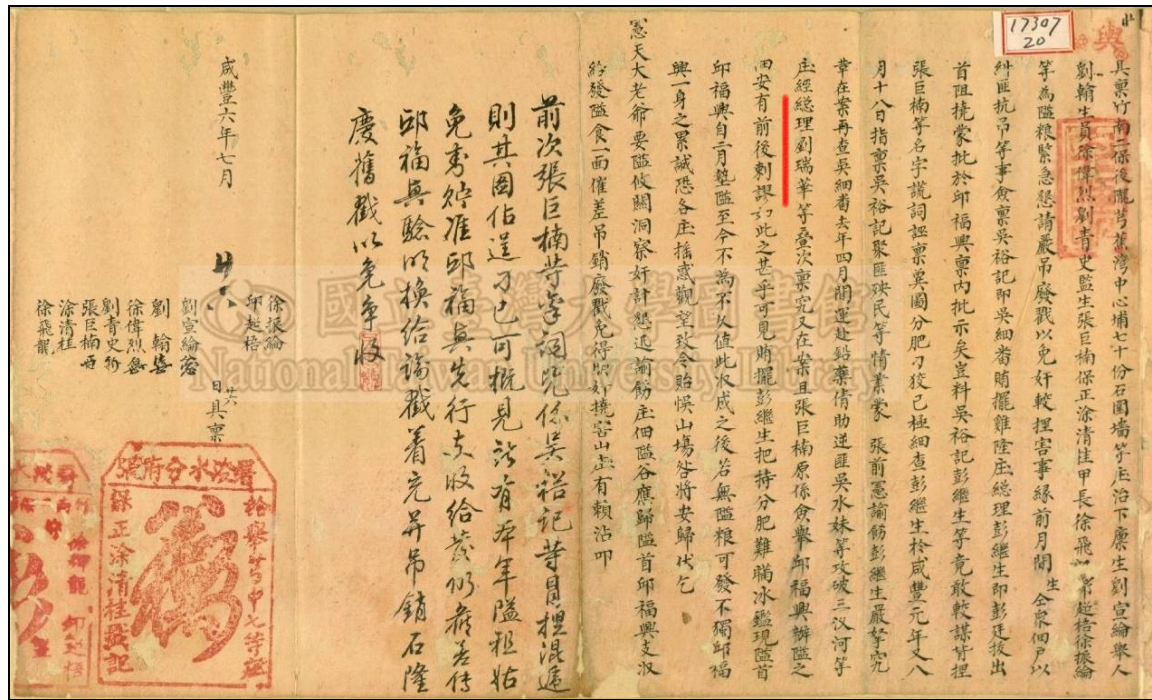 17307
20
具稟竹南二保後壠芎蕉灣中心埔七十份石圍墻等庄治下廩生劉宣綸舉人
劉翰生員徐偉烈劉青史監生張巨楠保正涂清桂甲長徐飛龍邱趂梧徐振綸
等為隘粮緊急懇請嚴吊廢戳以免奸較捏害事緣前月間生仝眾佃戶以
糾匪抗吊等事僉稟吳裕記即吳細番賄擺雞隆庄総理彭継生即彭廷拔出
首阻撓蒙批於邱福興稟內批示矣豈料吳裕記彭継生等竟敢較謀背捏
張巨楠等名字謊詞誣稟冀圖分肥刁狡已極細查彭継生於咸豐元年又八
月十八日指稟吳裕記聚匪殃民等情業蒙　張前憲諭飭彭継生嚴拏究
辜在案再查吳細番去年四月間運赴鉛藥倩助逆匪吳水妹等攻破三汊河等
庄經総理劉瑞華等叠次稟究又在案且張巨楠原係僉舉邱福興辦隘之
佃安有前後刺謬如此之甚乎可見賄擺彭継生把持分肥難瞞冰鑑現隘首
邱福興自二月墊隘至今不為不久值此收成之後若無隘粮可發不獨邱福
興一身之累誠恐各庄搖惑觀望致令貽悞山塲咎將安歸伏乞
憲天大老爺要隘攸關洞察奸計懇迅諭飭庄佃隘谷應歸隘首邱福興支收
給發隘食一面催差吊銷廢戳免得刁奸撓害山庄有賴沾叩
前次張巨楠等拿詞究係吳裕記等冒捏混遞
則其圖佔逞刁已可概見所有本年隘租姑
免封貯准邱福興先行支收給發仍飭差傳
邱福興驗明換給諭戳着充并吊銷石隆
慶舊戳以免爭收
咸豐六年七月　廿六　日具稟
徐振綸
邱趂梧
劉宣綸
劉翰
徐偉烈
劉青史
張巨楠
涂清桂
徐飛龍
署淡水分府張
給舉芎中七等庄
保正涂清桂戳記
國立臺灣大學圖書館
National Taiwan University Library